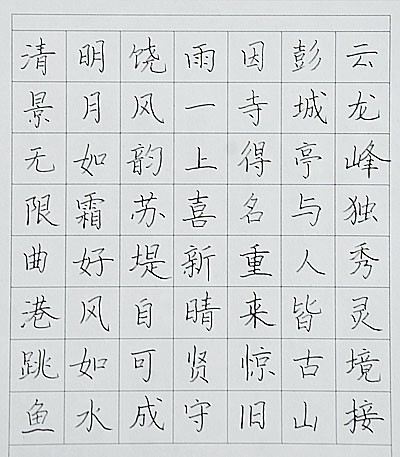 云龙峰独秀灵境接
彭城亭与人皆古山
因寺得名重来惊旧
雨一上喜新晴贤守
饶风韵苏堤自可成
明月如霜好风如水
清景无限曲港跳鱼